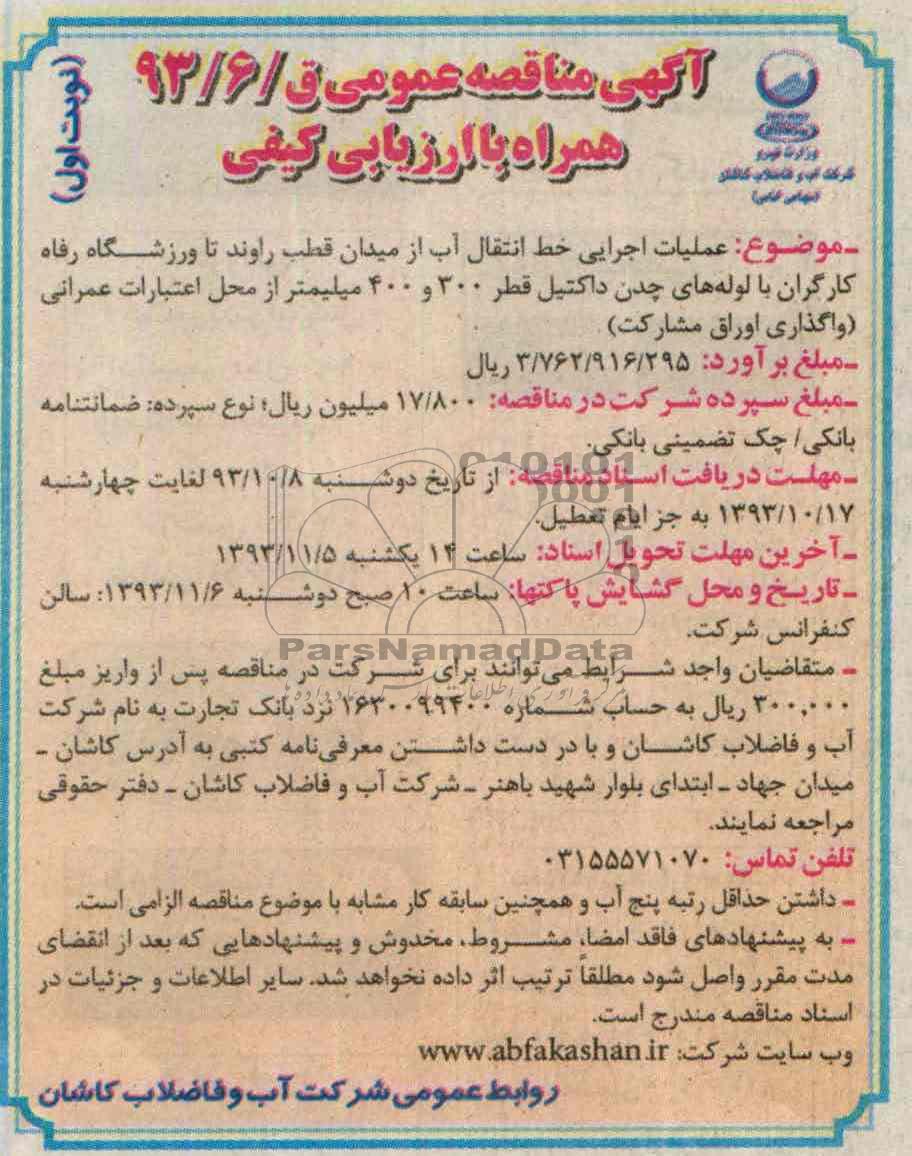 آگهی مناقصه عمومی ق/۹۳/۶
همراه با ارزیابی کیفی
(نوبت اول)
وزارت نیرو
شرکت آب و فاضلاب کاشان
(سهامی خاص)
ـ موضوع: عملیات اجرایی خط انتقال آب از میدان قطب راوند تا ورزشگاه رفاه
کارگران با لوله‌های چدن داکتیل قطر ۳۰۰ و ۴۰۰ میلیمتر از محل اعتبارات عمرانی
(واگذاری اوراق مشارکت)
ـ مبلغ برآورد: ۳/۷۶۲/۹۱۶/۲۹۵ ریال
ـ مبلغ سپرده شرکت در مناقصه: ۱۷/۸۰۰ میلیون ریال؛ نوع سپرده: ضمانتنامه
بانکی/ چک تضمینی بانکی.
ـ مهلت دریافت اسناد مناقصه: از تاریخ دوشنبه ۹۳/۱۰/۸ لغایت چهارشنبه
۱۳۹۳/۱۰/۱۷ به جز ایام تعطیل.
ـ آخرین مهلت تحویل اسناد: ساعت ۱۴ یکشنبه ۱۳۹۳/۱۱/۵
ـ تاریخ و محل گشایش پاکتها: ساعت ۱۰ صبح دوشنبه ۱۳۹۳/۱۱/۶: سالن
کنفرانس شرکت.
ParsNamadData
ـ متقاضیان واجد شرایط می‌توانند برای شرکت در مناقصه پس از واریز مبلغ
۳۰۰,۰۰۰ ریال به حساب شماره ۱۶۳۰۰۹۹۴۰۰ نزد بانک تجارت به نام شرکت
آب و فاضلاب کاشان و با در دست داشتن معرفی‌نامه کتبی به آدرس کاشان ـ
میدان جهاد ـ ابتدای بلوار شهید باهنر ـ شرکت آب و فاضلاب کاشان ـ دفتر حقوقی
مراجعه نمایند.
تلفن تماس: ۰۳۱۵۵۵۷۱۰۷۰
ـ داشتن حداقل رتبه پنج آب و همچنین سابقه کار مشابه با موضوع مناقصه الزامی است.
ـ به پیشنهادهای فاقد امضا، مشروط، مخدوش و پیشنهادهایی که بعد از انقضای
مدت مقرر واصل شود مطلقاً ترتیب اثر داده نخواهد شد. سایر اطلاعات و جزئیات در
اسناد مناقصه مندرج است.
وب سایت شرکت: www.abfakashan.ir
روابط عمومی شرکت آب و فاضلاب کاشان